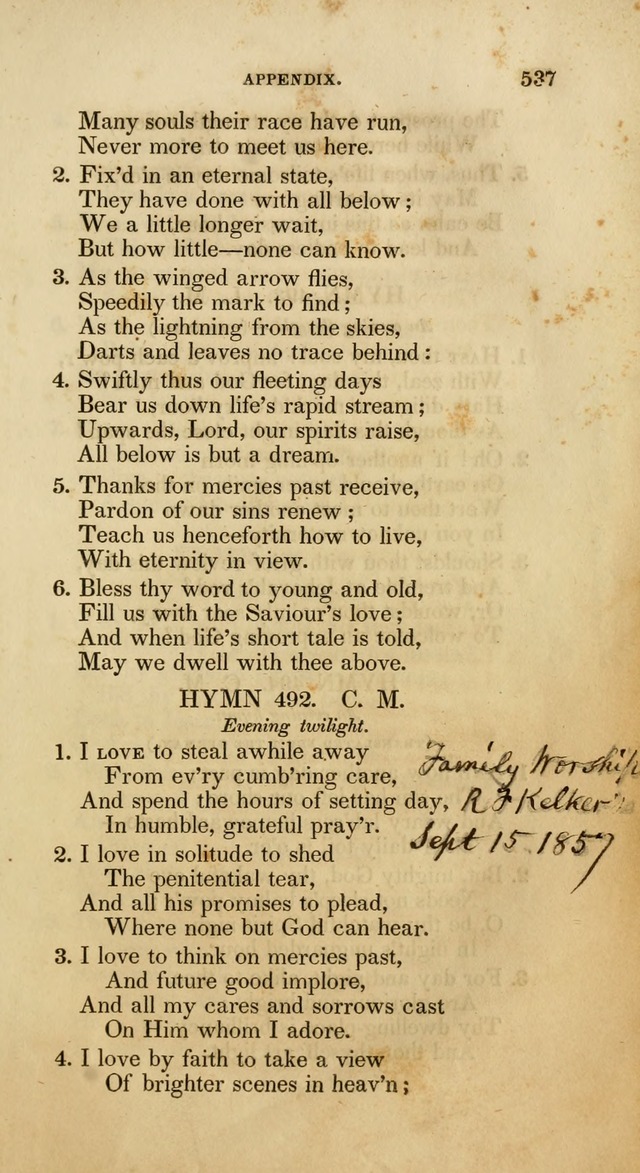 APPENDIX. 537
Many souls their race have run,
Never more to meet us here.
2. Fix'd in an eternal state,
They have done with all below;
We a little longer wait,
But how little—none can know.
3. As the winged arrow flies,
Speedily the mark to find;
As the lightning from the skies,
Darts and leaves no trace behind:
4. Swiftly thus our fleeting days
Bear us down life's rapid stream;
Upwards, Lord, our spirits raise,
All below is but a dream.
5. Thanks for mercies past receive,
Pardon of our sins renew;
Teach us henceforth how to live,
With eternity in view.
6. Bless thy word to young and old,
Fill us with the Saviour's love;
And when life's short tale is told,
May we dwell with thee above.
HYMN 492. C. M.
Evening twilight.
1. I LOVE to steal awhile away
From ev'ry cumb'ring care,
And spend the hours of setting day,
In humble, grateful pray'r.
Family Worship
R F Kelker's
Sept 15 1857
2. I love in solitude to shed
The penitential tear,
And all his promises to plead,
Where none but God can hear.
3. I love to think on mercies past,
And future good implore,
And all my cares and sorrows cast
On Him whom I adore.
4. I love by faith to take a view
Of brighter scenes in heav'n;